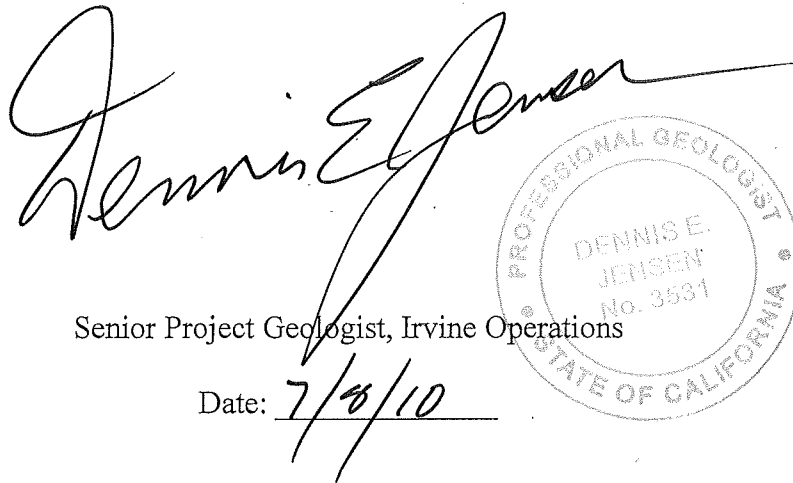 Dennis E Jensen
PROFESSIONAL GEOLOGIST
DENNIS E.
JENSEN
No. 3531
STATE OF CALIFORNIA
Senior Project Geologist, Irvine Operations
Date: 7/8/10